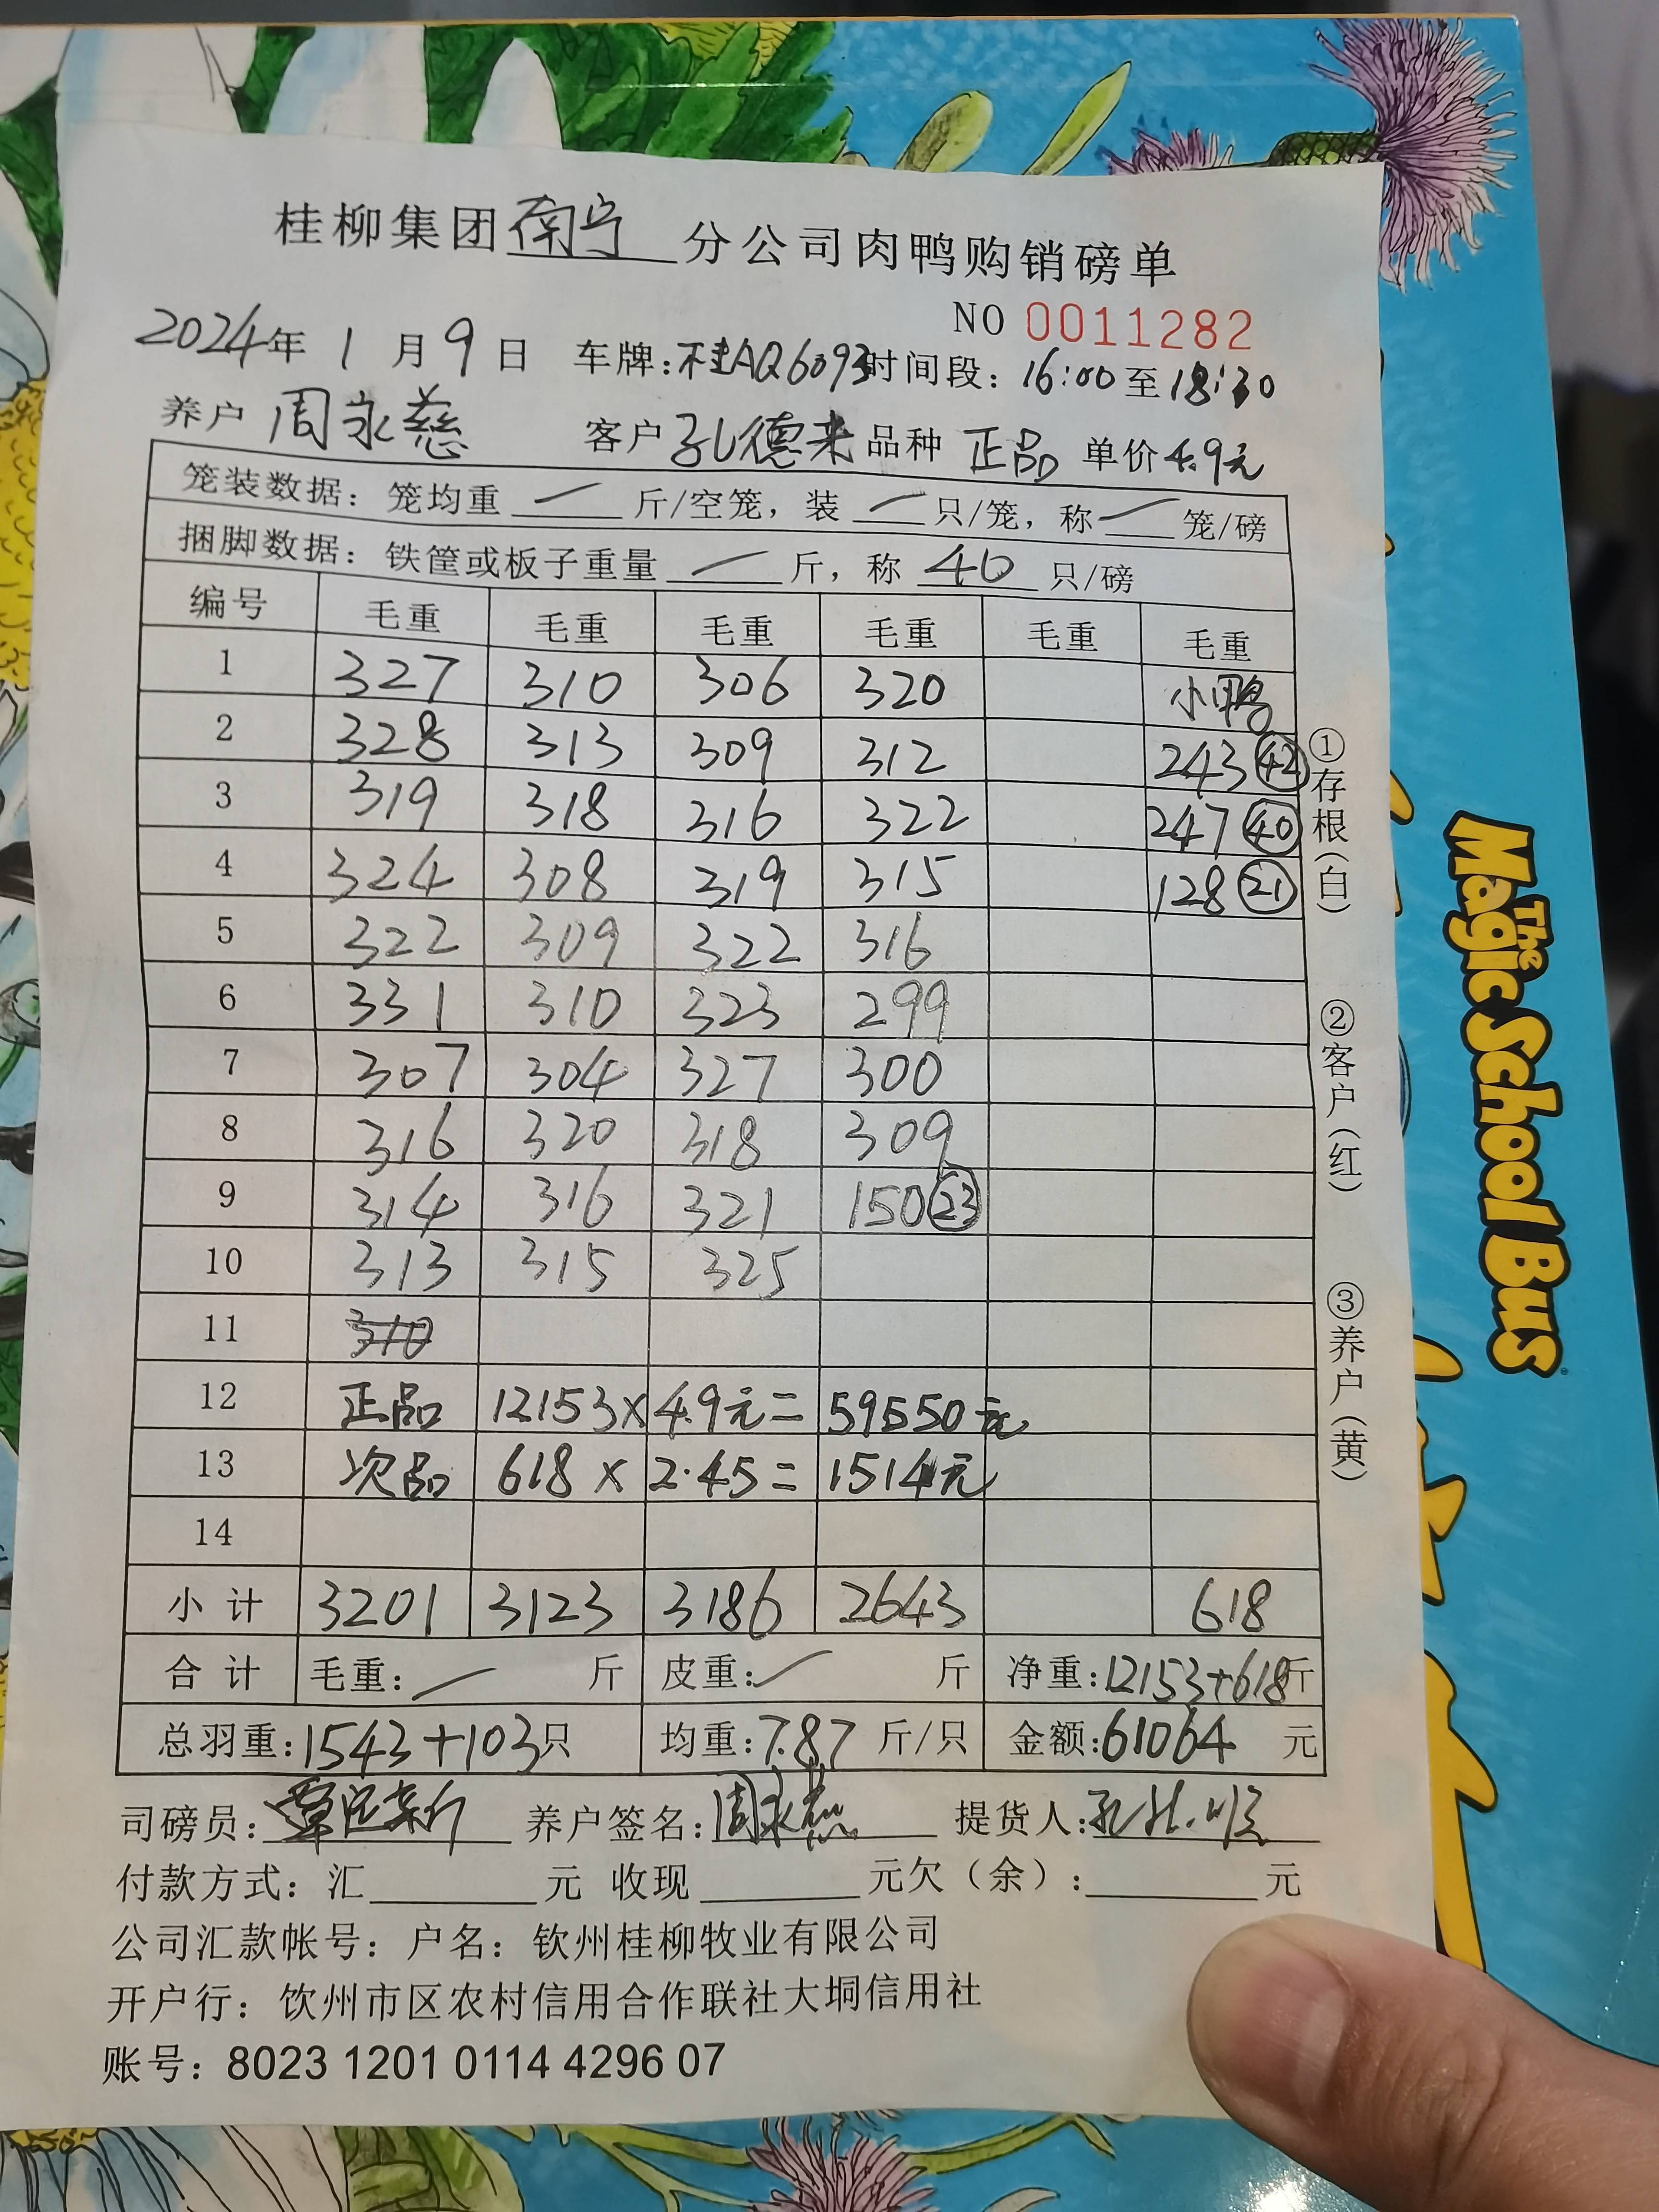 桂柳集团南宁分公司肉鸭购销磅单
NO 0011282
2024年 1月 9日 车牌:桂AQ6093 时间段:16:00至18:30
养户 周永慈 客户 孔德来 品种 正品 单价 4.9元
笼装数据:笼均重 — 斤/空笼,装 — 只/笼,称 — 笼/磅
捆脚数据:铁筐或板子重量 — 斤,称 40 只/磅
编号 毛重 毛重 毛重 毛重 毛重 毛重
1 327 310 306 320 小鸭
2 328 313 309 312 243 ㊷
3 319 318 316 322 247 ㊵
4 324 308 319 315 128 ㉑
5 322 309 322 316
6 331 310 323 299
7 307 304 327 300
8 316 320 318 309
9 314 316 321 150 ㉓
10 313 315 325
11
12 正品 12153×4.9元=59550元
13 次品 618×2.45=1514元
14
小计 3201 3123 3186 2643 618
合计 毛重:— 斤 皮重:— 斤 净重:12153+618斤
总羽重:1543+103只 均重:7.87斤/只 金额:61064 元
司磅员: 养户签名:周永慈 提货人:
付款方式:汇 元 收现 元欠(余): 元
公司汇款帐号:户名:钦州桂柳牧业有限公司
开户行:饮州市区农村信用合作联社大垌信用社
账号:8023 1201 0114 4296 07
①存根(白)
②客户(红)
③养户(黄)
The Magic School Bus